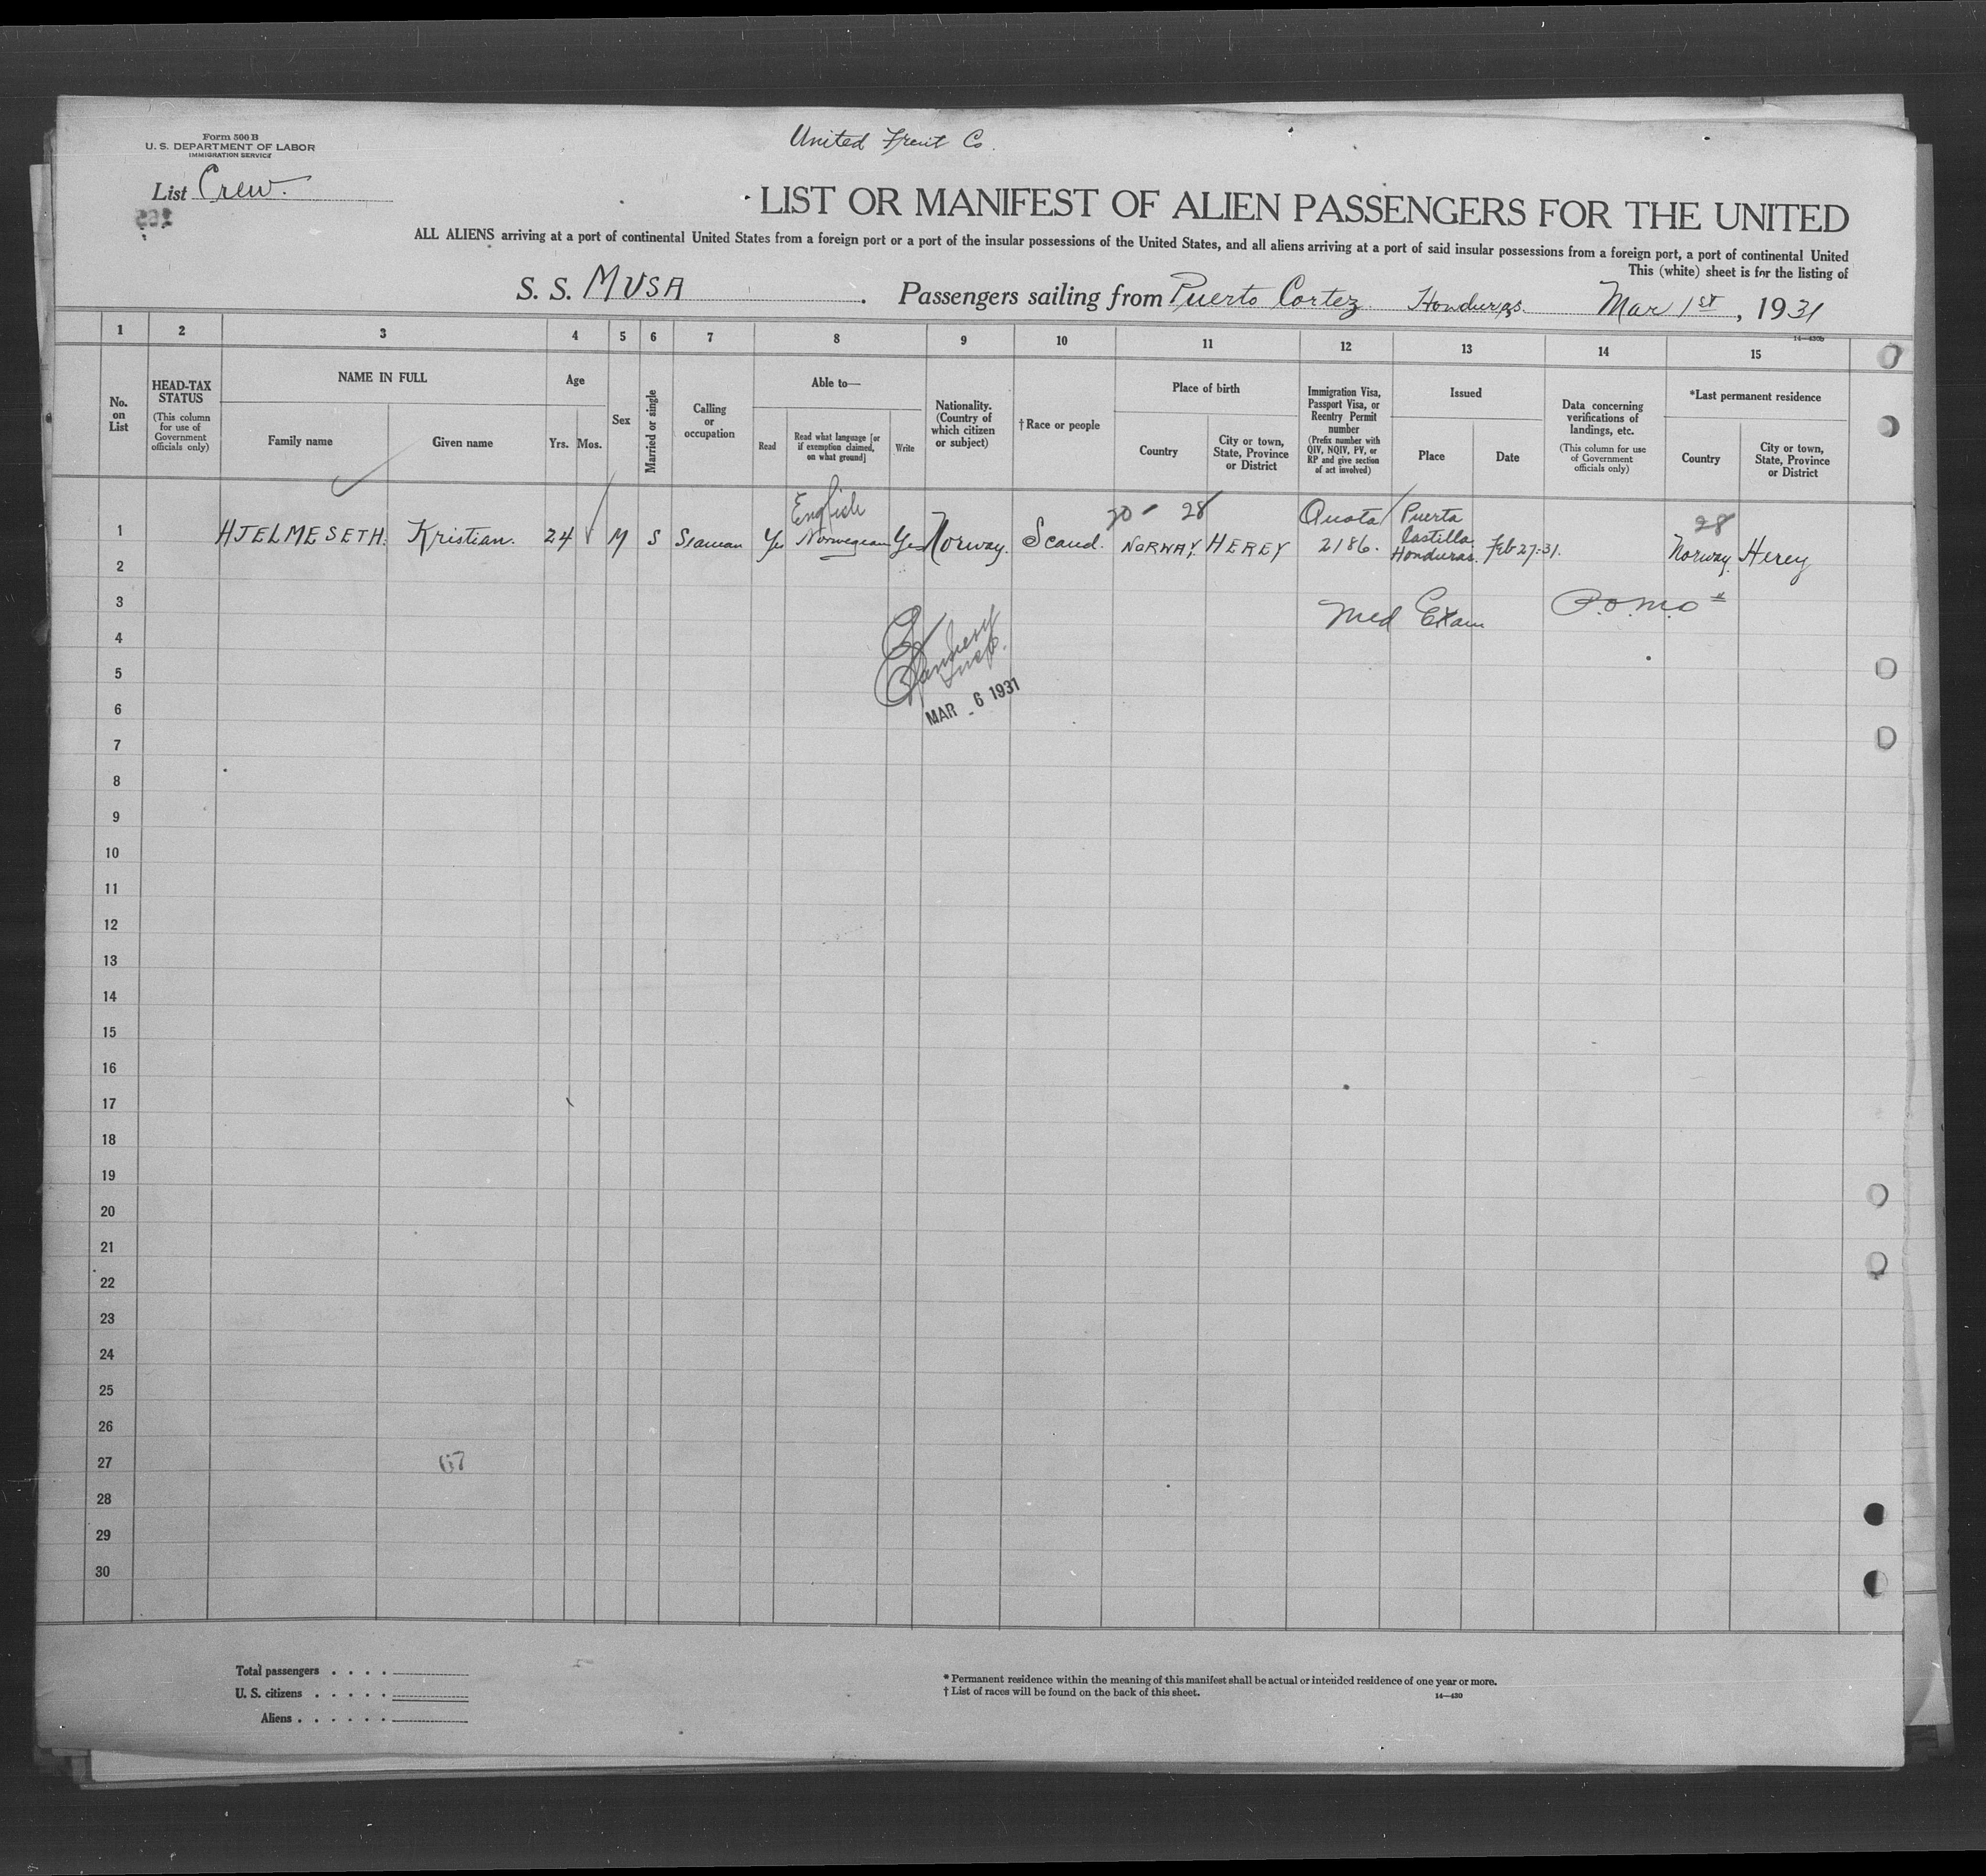 Form 500 B
U. S. DEPARTMENT OF LABOR
IMMIGRATION SERVICE
United Fruit Co.
List Crew.
LIST OR MANIFEST OF ALIEN PASSENGERS FOR THE UNITED
ALL ALIENS arriving at a port of continental United States from a foreign port or a port of the insular possessions of the United States, and all aliens arriving at a port of said insular possessions from a foreign port, a port of continental United
This (white) sheet is for the listing of
S. S. MUSA. Passengers sailing from Puerto Cortez Honduras. Mar 1st, 1931
14—430b
1 2 3 4 5 6 7 8 9 10 11 12 13 14 15
No. on List
HEAD-TAX STATUS
(This column for use of Government officials only)
NAME IN FULL
Family name
Given name
Age
Yrs. Mos.
Sex
Married or single
Calling or occupation
Able to—
Read
Read what language [or if exemption claimed, on what ground]
Write
Nationality. (Country of which citizen or subject)
† Race or people
Place of birth
Country
City or town, State, Province or District
Immigration Visa, Passport Visa, or Reentry Permit number
(Prefix number with QIV, NQIV, PV, or RP and give section of act involved)
Issued
Place
Date
Data concerning verifications of landings, etc.
(This column for use of Government officials only)
*Last permanent residence
Country
City or town, State, Province or District
1 HJELMESETH. Kristian. 24 M S Seaman Yes English Norwegian Yes Norway. Scand. NORWAY, HEREY Quota 2186. Puerta Castilla Honduras. Feb 27-31. Norway. Herey
20 28
28
2
3 Med Exam
4
5
6
MAR 6 1931
7
8
9
10
11
12
13
14
15
16
17
18
19
20
21
22
23
24
25
26
27
67
28
29
30
Total passengers . . . .
U. S. citizens . . . . .
Aliens . . . . . .
* Permanent residence within the meaning of this manifest shall be actual or intended residence of one year or more.
† List of races will be found on the back of this sheet.
14—430